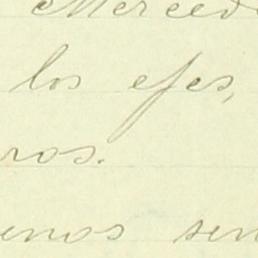 Merced
los efes,
ros.
enos sen